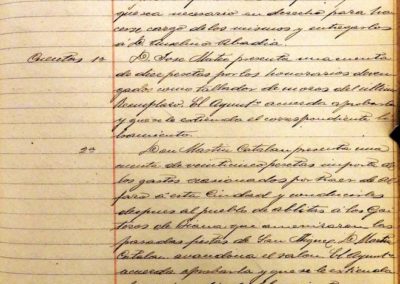 que sea necesario en derecho para ha-
cerse cargo de los mismos y entregarlos
á D. Abadía.
Cuentas 1ª D. Jose Mateo presenta una cuenta
de diez pesetas por los honorarios deven-
gados como tallador de mozos del ultimo
Reemplazo. El Ayuntº acuerda aprobarla
y que se le estienda el correspondiente li-
bramiento.
2ª Don Martin Catalan presenta una
cuenta de veinticinco pesetas importe de
los gastos ocasionados por traer de Al-
faro á esta Ciudad y conducirles
despues al pueblo de Ablitas á los Gai-
teros de que amenizaron las
pasadas fiestas de San Miguel. D. Martin
Catalan abandona el salon. El Ayuntº
acuerda aprobarla y que se le estienda